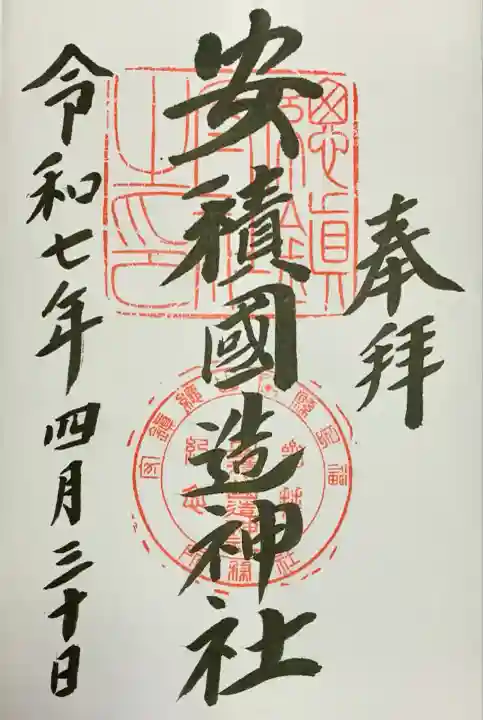 奉拝
安積國造神社
令和七年四月三十日